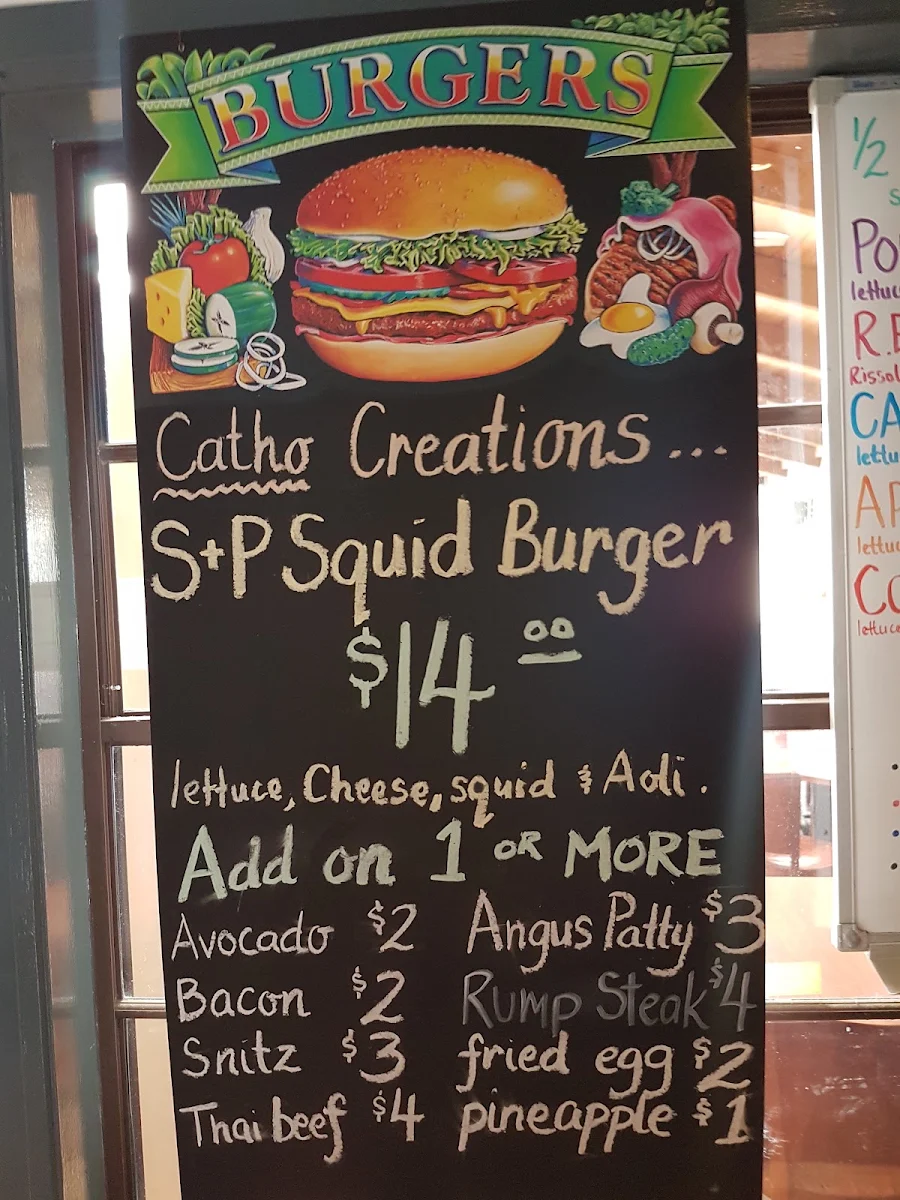 BURGERS
Catho Creations...
S+P Squid Burger
$14.00
lettuce, Cheese, squid & Aoli.
Add on 1 OR MORE
Avocado $2 Angus Patty $3
Bacon $2 Rump Steak $4
Snitz $3 fried egg $2
Thai beef $4 pineapple $1
1/2
R.
lettuce